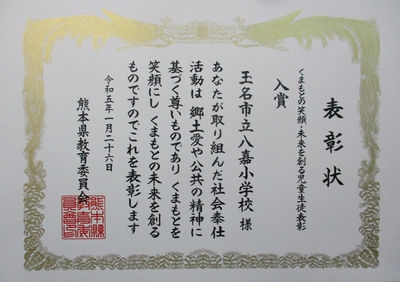 表彰状
くまもとの笑顔・未来を創る児童生徒表彰
入賞
玉名市立八嘉小学校 様
あなたが取り組んだ社会奉仕
活動は 郷土愛や公共の精神に
基づく尊いものであり くまもとを
笑顔にし くまもとの未来を創る
ものですのでこれを表彰します
令和五年一月二十六日
熊本県教育委員会